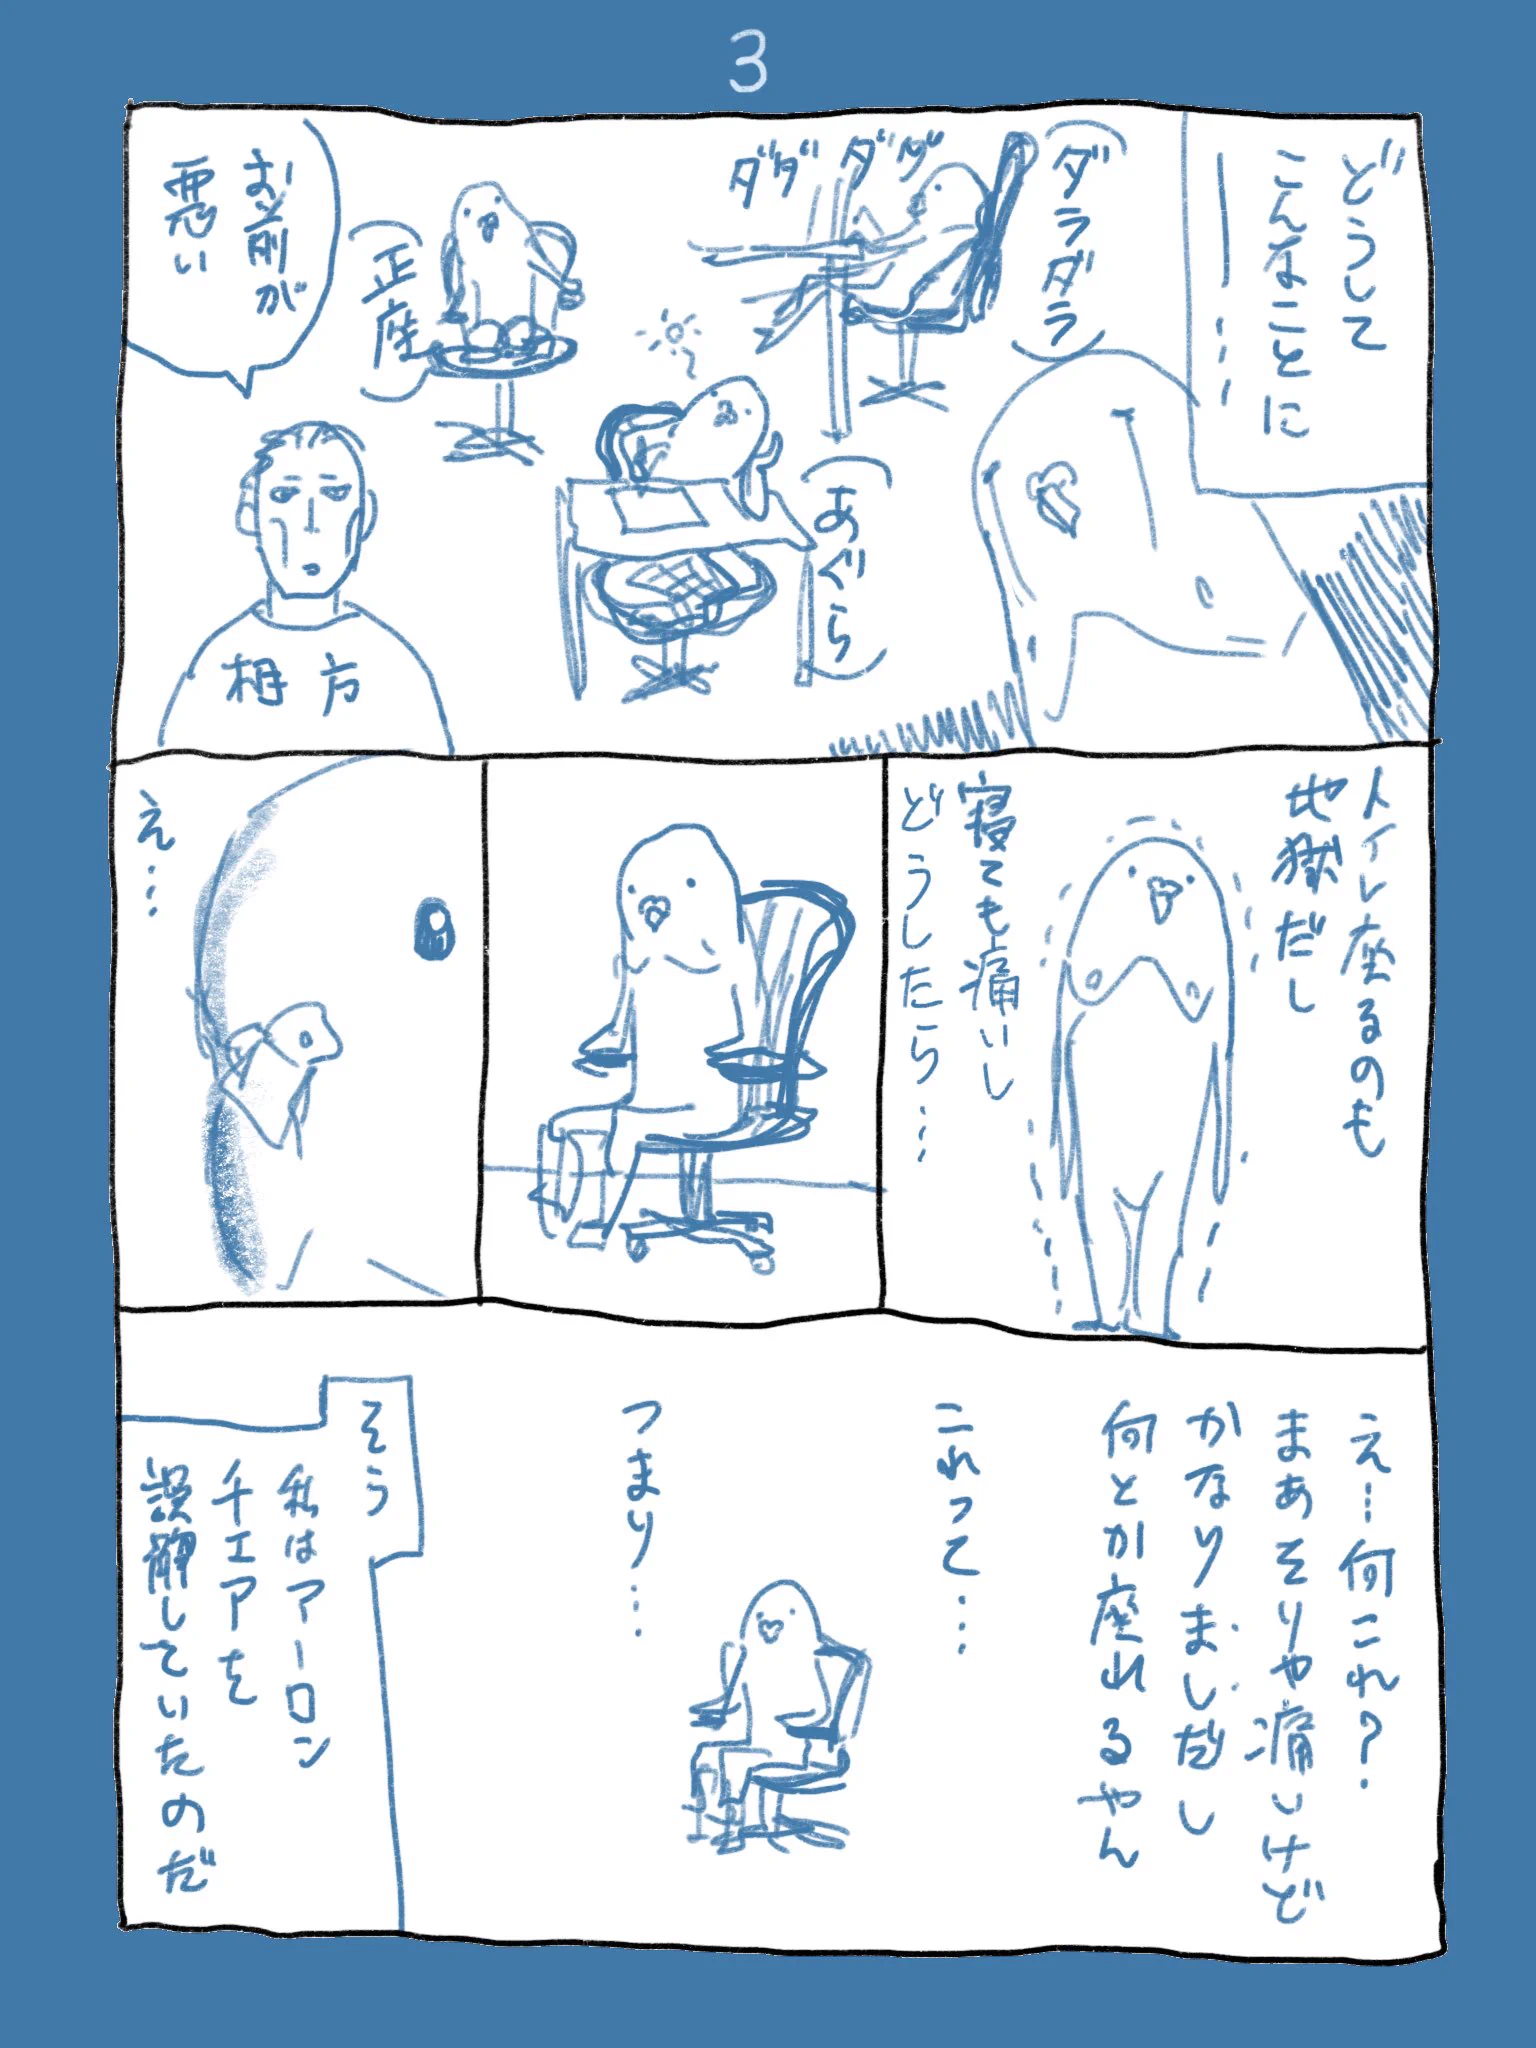 3
どうして
こんなことに
――……
(ダラダラ)
ダダダダ
(あぐら)
(正座)
お前が
悪い
相方
トイレ座るのも
地獄だし
寝ても痛いし
どうしたら…
え…
え…何これ?
まあそりゃ痛いけど
かなりましだし
何とか座れるやん
これって…
つまり…
そう
私はアーロン
チェアを
誤解していたのだ